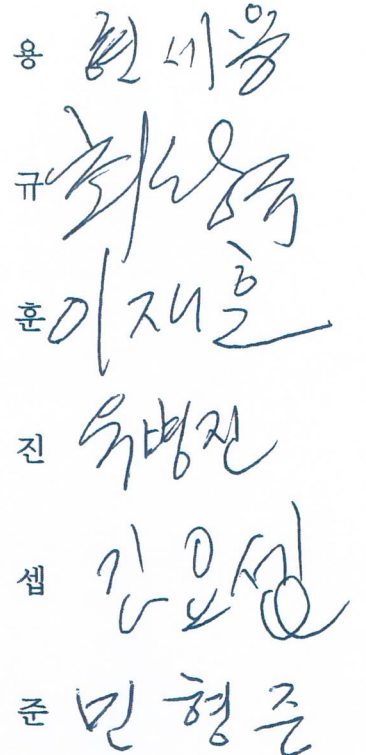 용 현세용
규 최상규
훈 이재훈
진 유병진
셉 김요셉
준 민형준